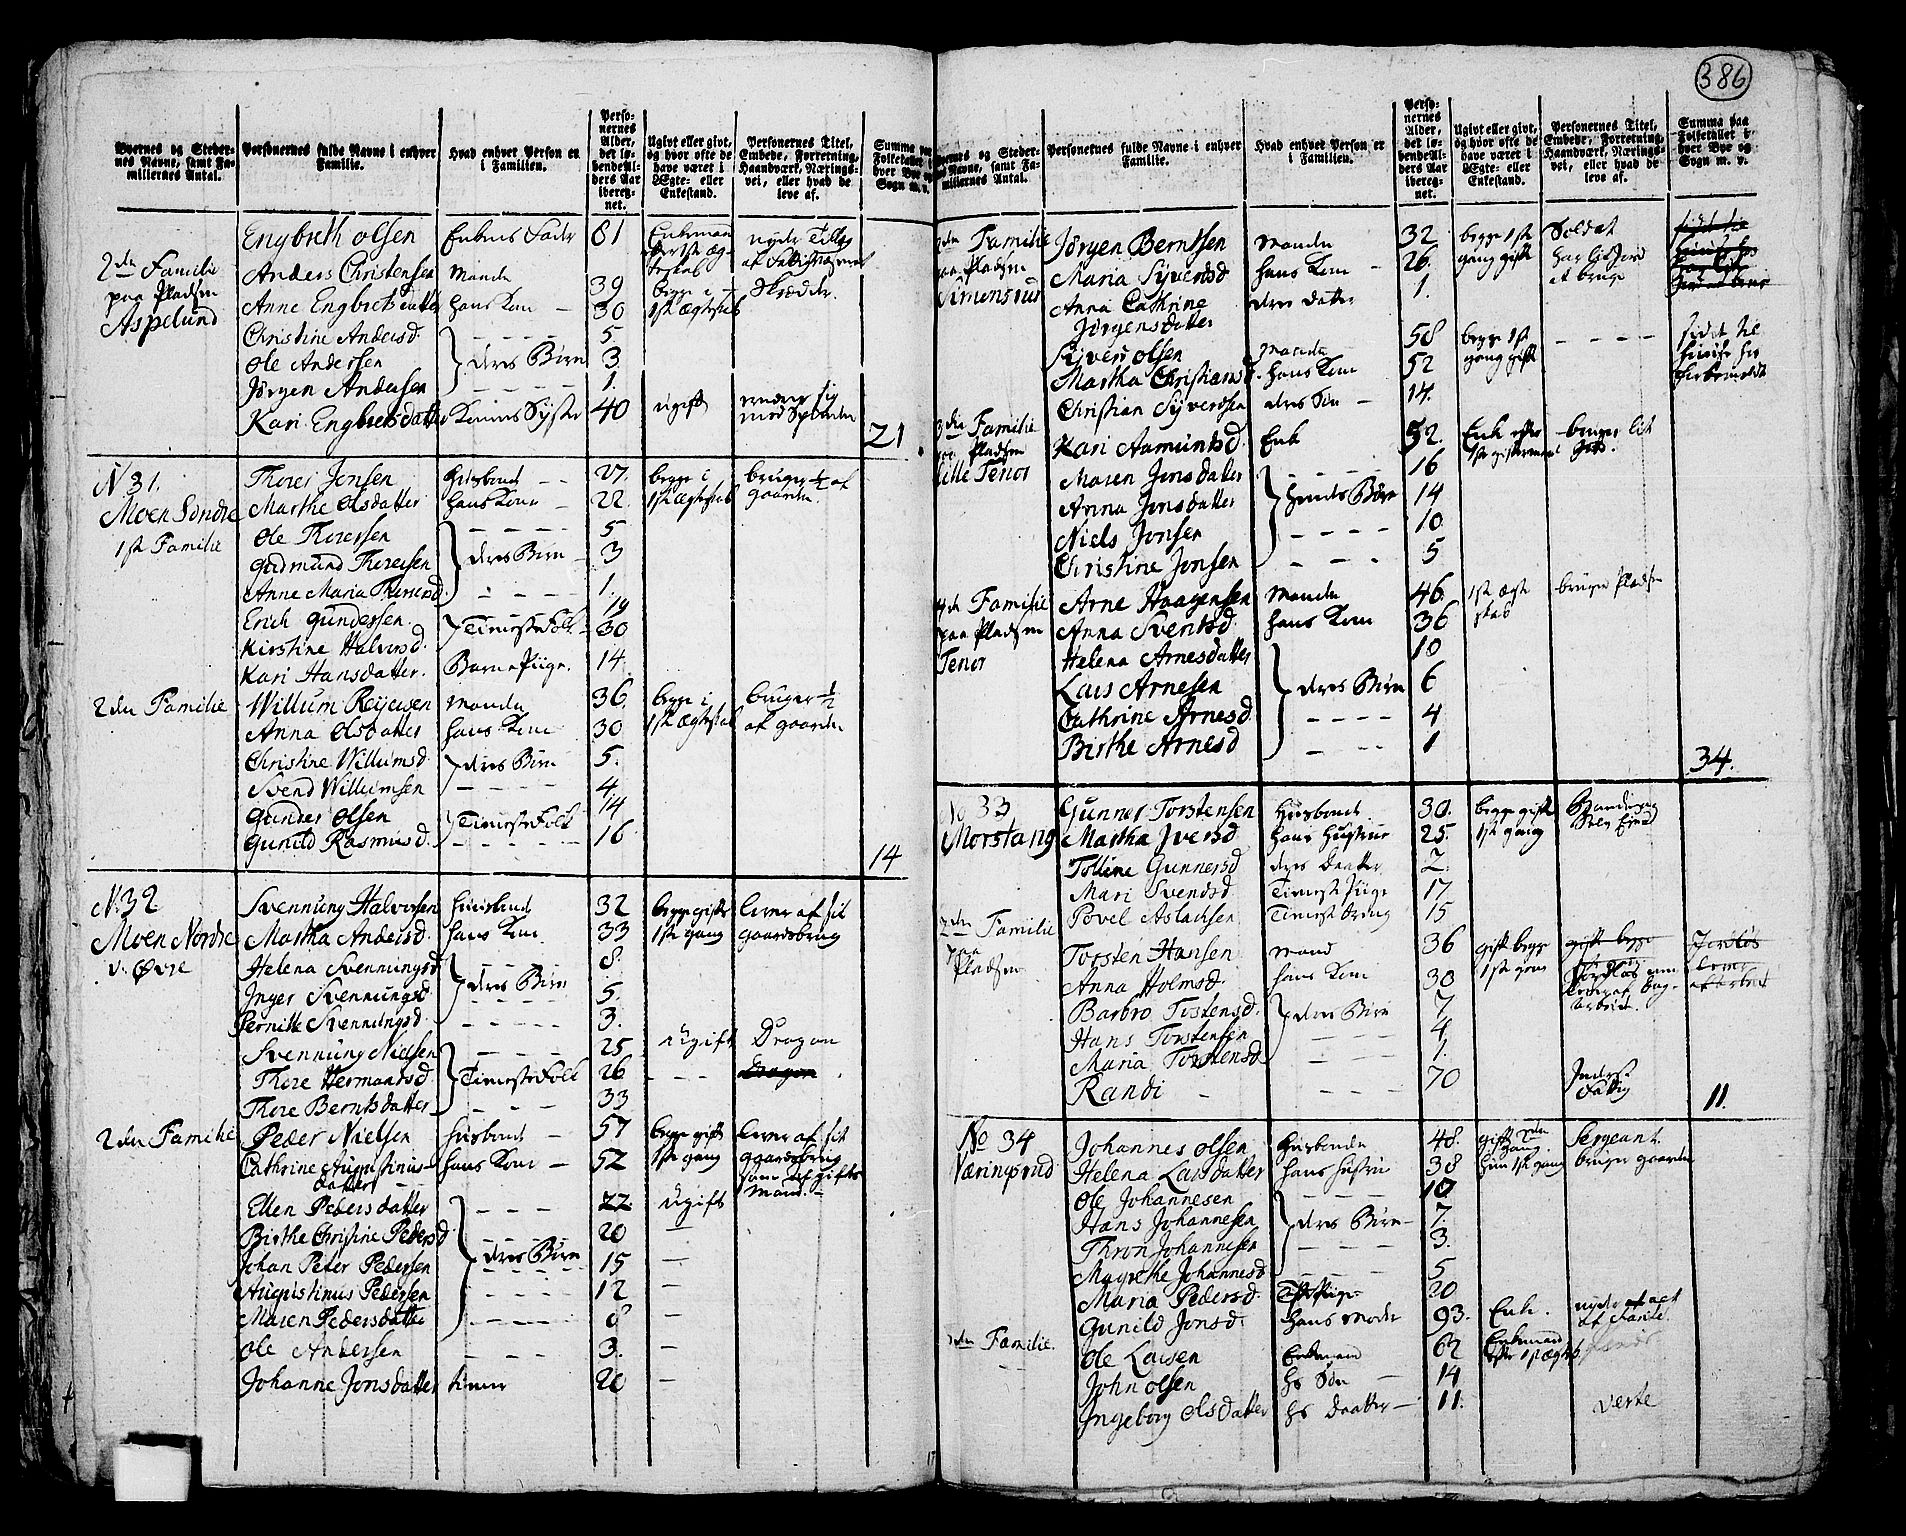 386
Byernes og Steder-
nes Navne, samt Fa-
milliernes Antal.
Personernes fulde Navne i enhver
Familie.
Hvad enhver Person er
i Familien.
Perso-
nernes
Alder,
det lø-
bende Al-
ders Aar
iberegn-
net.
Ugivt eller givt,
og hvor ofte de
have været i
Ægte- eller
Enkestand.
Personernes Titel,
Embede, Forretning,
Haandværk, Nærings-
vei, eller hvad de
leve af.
Summa paa
Folketallet i
hver Bye og
Sogn m. v.
Engbreth Olsen Enkens Fader 81 Enkemand
2den Familie
paa Pladsen
Aspelund
Anders Christensen Mand 39 begge i Skrædder
Anne Engbretsdatter hans Kone 30 1ste Ægteskab
Christine Andersd. 5
Ole Andersen deres Børn 3
Jørgen Andersen 1.
Kari Engbretsdatter Konens Syster 40 ugift ernærer sig
med Spinden
21
N 31.
Moen Søndre
1ste Familie
Thorer Jonsen Husbond 27. begge i bruger 1/2 af
Marthe Olsdatter hans Kone 22. 1ste Ægteskab gaarden.
Ole Thoresen 5
Gudmund Thoresen deres Børn 3
Anne Maria Thoresd. 1.
Erich Gundersen 19
Kirstine Halvorsd. Tieneste Folk 30
Kari Hansdatter. Barne Piige. 14
2den Familie Willum Reyersen Mand 36 begge i bruger 1/2
Anna Olsdatter hans Kone 30 1ste Ægteskab af gaarden
Christine Willumsd. deres Børn 5.
Svend Willumsen 4
Gunder Olsen Tieneste Folk 14
Gunild Rasmusd. 16
14
N. 32
Moen Nordre
v. Øvre
Svennung Halvorsen Huusbond 32 begge gifte lever af sit
Martha Andersd. hans Kone 33 1ste gang gaardsbrug
Helena Svennungsd 8
Inger Svennungsd deres Børn 5.
Pernille Svennungsd. 3.
Svennung Nielsen 25 ugift Dragon
Thore Hermansd. Tieneste Folk 26
Thore Berntsdatter 33
2den Familie Peder Nielsen Husbond 57 begge gift lever af sit
Cathrine Augustinus- hans Kone 52 1ste gang gaardsbrug
datter
Ellen Pedersdatter 22 ugift
Birthe Christine Pedersd 20
Johan Peter Pedersen deres Børn 15
Augustinus Pedersen 12
Maren Pedersdatter 8
Ole Andersen 3.
Johanne Jonsdatter 20
Byernes og Steder-
nes Navne, samt Fa-
milliernes Antal.
Personernes fulde Navne i enhver
Familie.
Hvad enhver Person er
i Familien.
Perso-
nernes
Alder,
det lø-
bende Al-
ders Aar
iberegn-
net.
Ugivt eller givt,
og hvor ofte de
have været i
Ægte- eller
Enkestand.
Personernes Titel,
Embede, Forretning,
Haandværk, Nærings-
vei, eller hvad de
leve af.
Summa paa
Folketallet i
hver Bye og
Sogn m. v.
2den Familie
paa Pladsen
Simensrud
Jørgen Berntsen Mand 32 begge 1ste Soldat
Maria Syversd hans Kone 26 gang gift har lit jord
Anna Cathrine deres Datter 1. at bruge
Jørgensdatter
Syver Olsen Mand 58 begge 1ste
Martha Christians hans Kone 52 gang gift
Christian Syversen deres Søn 14.
3die Familie
paa Pladsen
Lille Tenor
Kari Aamundsd. Enke 52. Enke efter bruger lit
Maren Jonsdatter 16
Anna Jonsdatter hendes Børn 14
Niels Jonsen 10
Christine Jonsen 5
4de Familie
paa Pladsen
Tenor
Arne Haagensen Mand 46 1ste Ægte bruger Pladsen
Anna Svensd. hans Kone 36 skab
Helena Arnesdatter 10
Lars Arnesen deres Børn 6
Cathrine Arnesd. 4
Birthe Arnesd 1
34.
No 33
Morstang
Gunner Torstensen Husbond 30. begge gift
Martha Iversd. hans Hustrue 25. 1ste gang
Tolline Gunnersd deres Daatter 2.
Mari Svendsd. Tieneste Piige 17
Povel Aslachsen Tieneste Dreng 15
2den Familie
paa
Pladsen
Torsten Hansen Mand 36 gift begge
Anna Holmsd. hans Kone 30 1ste gang
Barbro Tostensd. deres Børn 7
Hans Torstensen 4
Maria Torstensd 1.
Randi 70 Inderst
Fattig
11.
No 34
Væringsrud
Johannes Olsen Husbonde 48. gift 2den Sergeant.
gang
Helena Larsdatter hans Hustru 38 hun 1ste gang bruger gaarden
Ole Johannesen 10
Hans Johannesen deres Børn 7.
Thron Johannesen 3.
Magrethe Johannesd 5
Maria Pedersd. 20
Gunild Jonsd. hans Moder 93. Enke.
2den Familie. Ole Larsen Enkemand 62 Enkemand
John Olsen hs Søn 14
Ingeborg Olsdatter hs Daatter 11.
verte